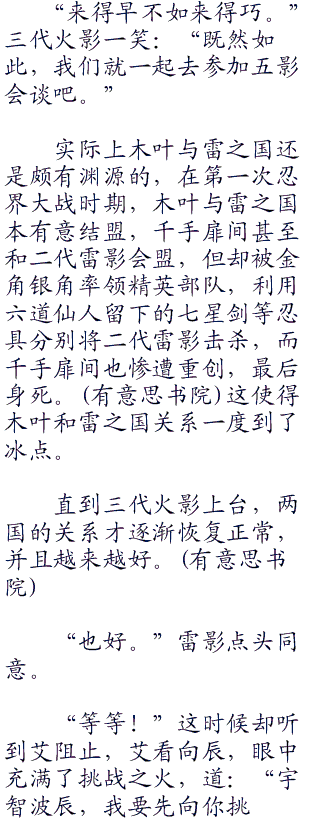 “来得早不如来得巧。”
三代火影一笑：“既然如
此，我们就一起去参加五影
会谈吧。”
实际上木叶与雷之国还
是颇有渊源的，在第一次忍
界大战时期，木叶与雷之国
本有意结盟，千手扉间甚至
和二代雷影会盟，但却被金
角银角率领精英部队，利用
六道仙人留下的七星剑等忍
具分别将二代雷影击杀，而
千手扉间也惨遭重创，最后
身死。(有意思书院)这使得
木叶和雷之国关系一度到了
冰点。
直到三代火影上台，两
国的关系才逐渐恢复正常，
并且越来越好。(有意思书
院)
“也好。”雷影点头同
意。
“等等！”这时候却听
到艾阻止，艾看向辰，眼中
充满了挑战之火，道：“宇
智波辰，我要先向你挑